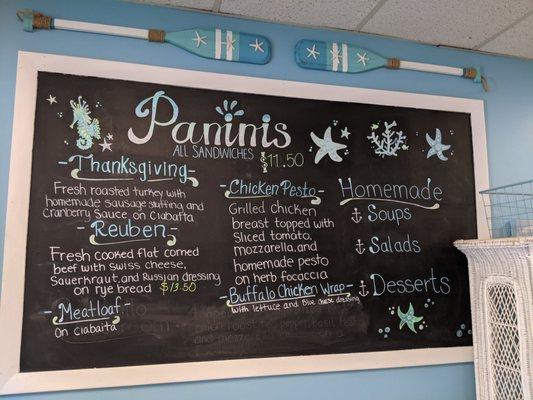 Paninis
ALL SANDWICHES $11.50
-Thanksgiving-
Fresh roasted turkey with
homemade sausage stuffing, and
cranberry sauce, on ciabatta
-Reuben-
Fresh cooked flat corned
beef with swiss cheese,
Sauerkraut, and Russian dressing
on rye bread $13.50
-Meatloaf-
on ciabatta
-Chicken Pesto-
Grilled chicken
breast topped with
Sliced tomato,
mozzarella, and
homemade pesto
on herb focaccia
-Buffalo Chicken Wrap-
with lettuce and Blue cheese dressing
Homemade
Soups
Salads
Desserts